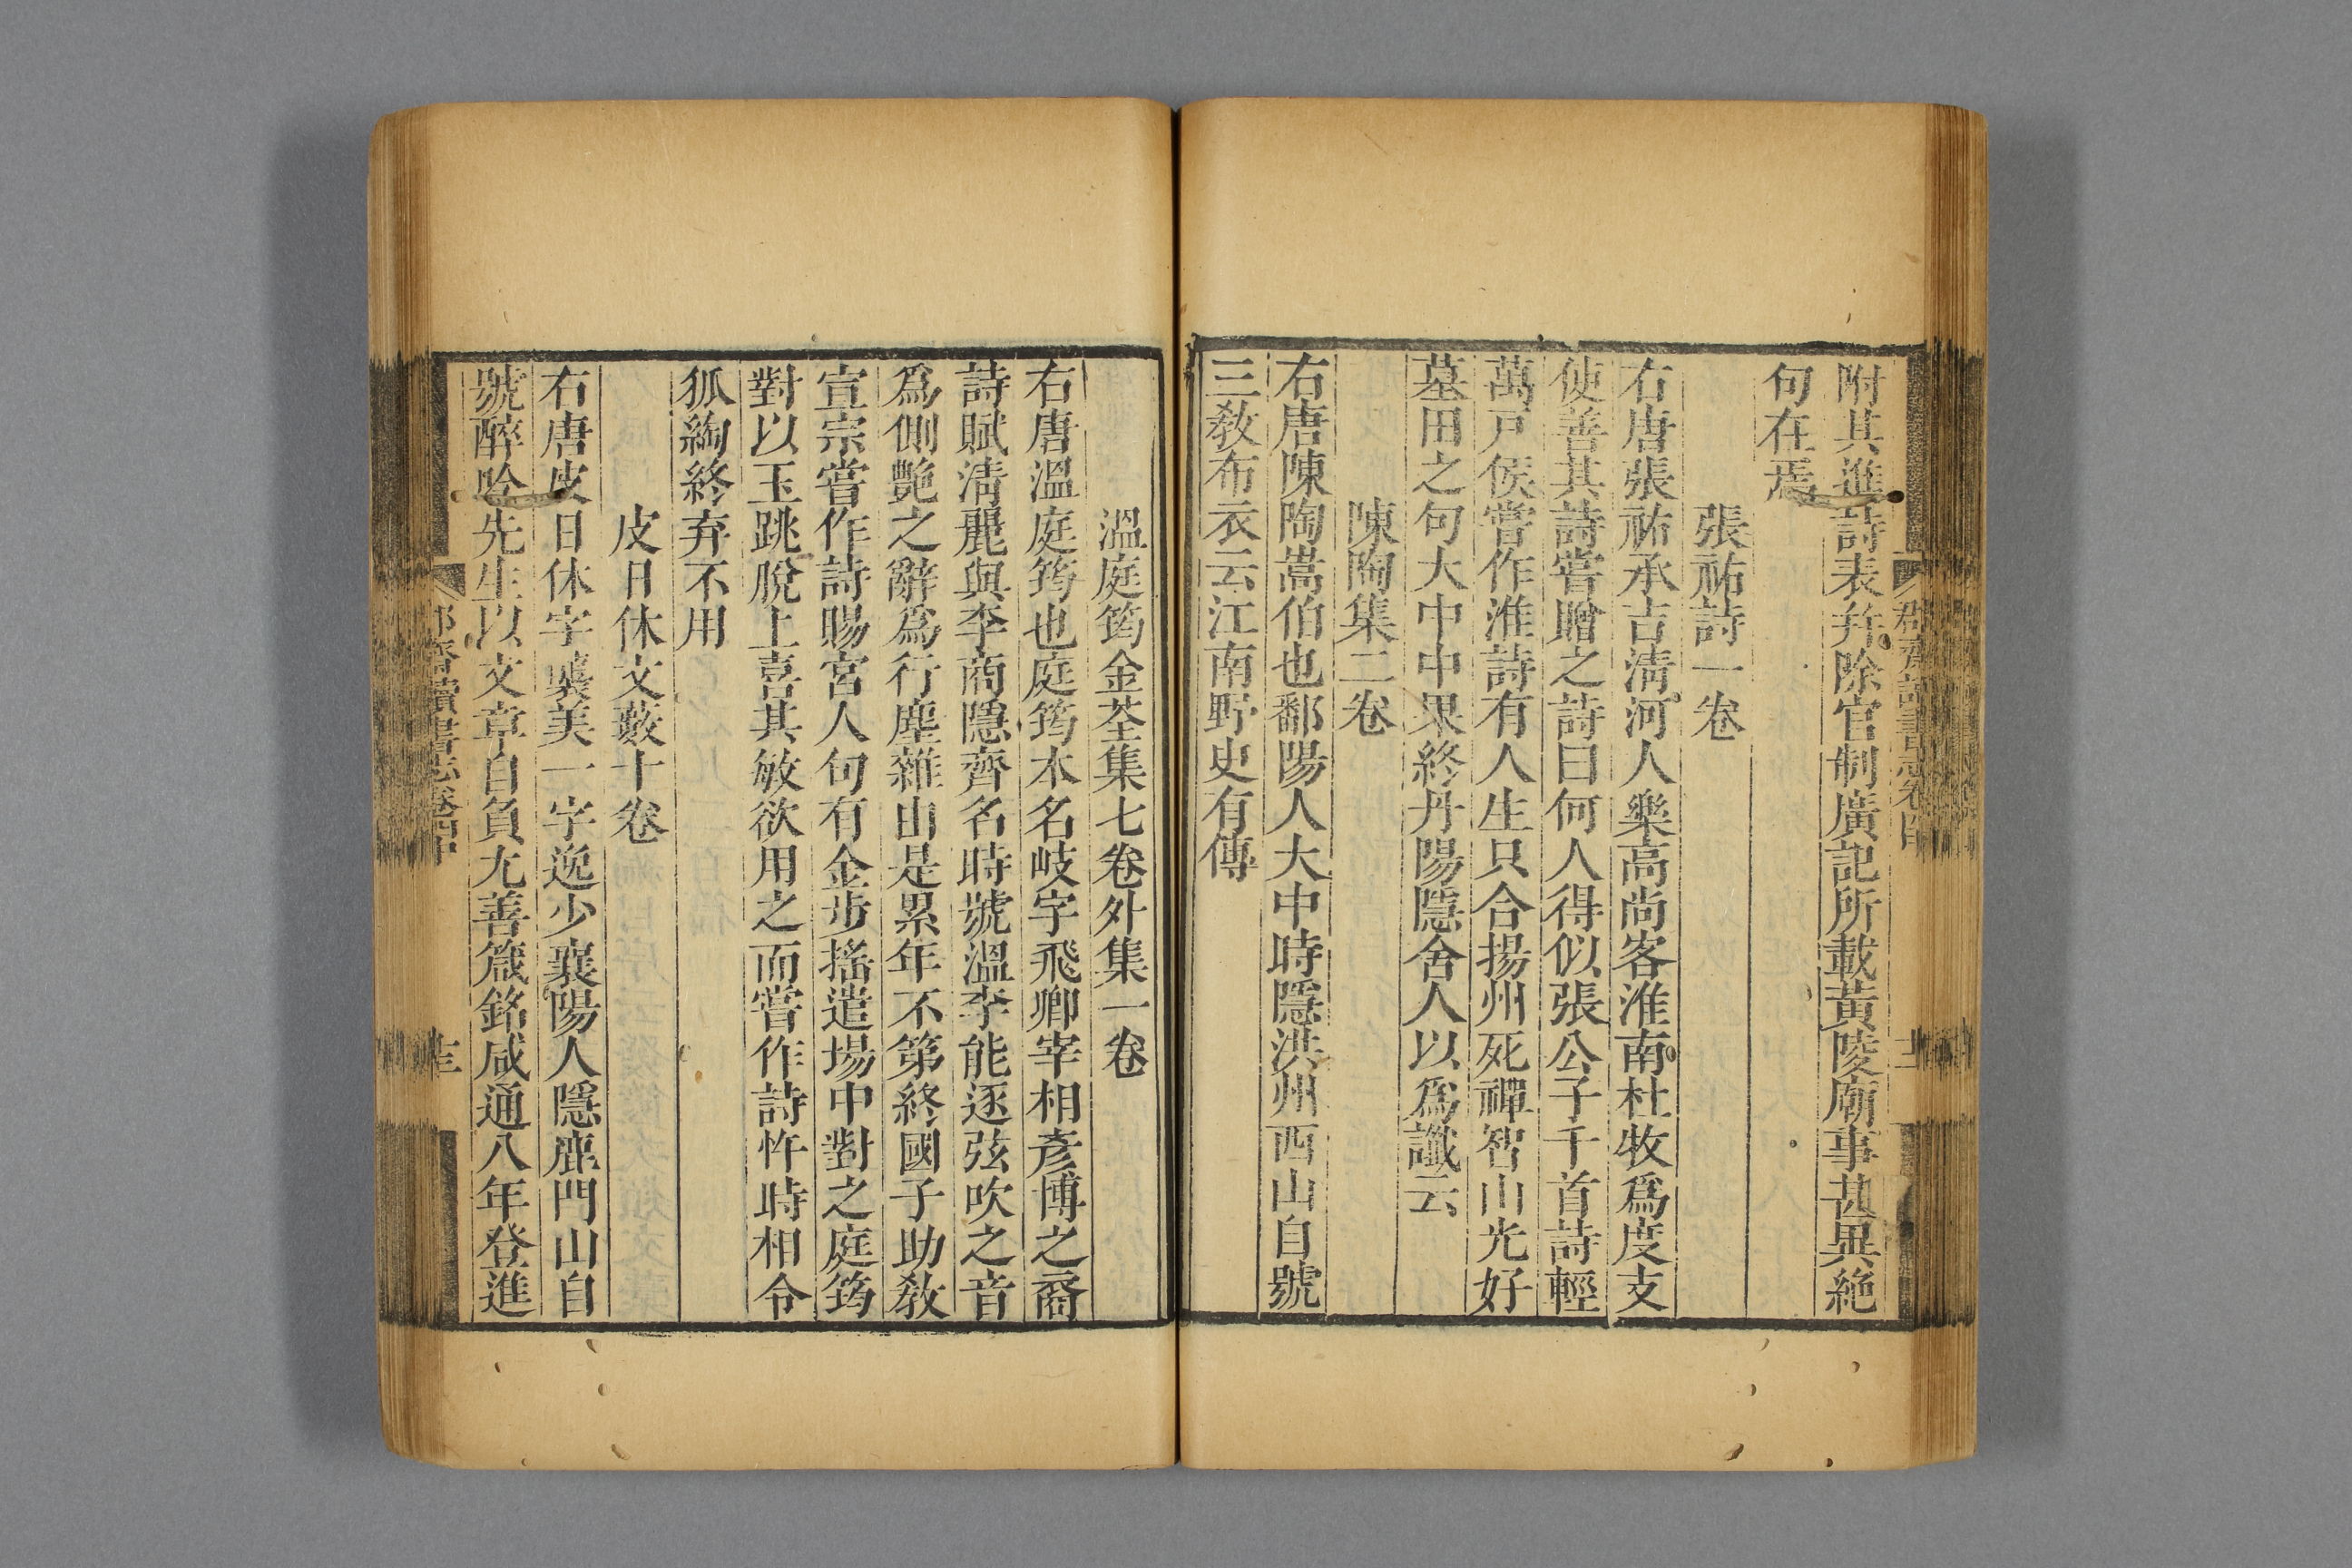 附其進詩表并除官制廣記所載黃陵廟事甚異絶
句在焉
張祐詩一卷
右唐張祐承吉淸河人樂高尚客淮南杜牧爲度支
使善其詩嘗贈之詩曰何人得似張公子千首詩輕
萬戸侯嘗作淮詩有人生只合揚州死禪智山光好
墓田之句大中中果終丹陽隱舍人以爲讖云
陳陶集二卷
右唐陳陶嵩伯也鄱陽人大中時隱洪州西山自號
三敎布衣云江南野史有傳
溫庭筠金荃集七卷外集一卷
右唐溫庭筠也庭筠本名岐字飛卿宰相彥博之裔
詩賦淸麗與李商隱齊名時號溫李能逐弦吹之音
爲側艷之辭爲行塵雜由是累年不第終國子助敎
宣宗嘗作詩賜宮人句有金步搖遣場中對之庭筠
對以玉跳脫上喜其敏欲用之而嘗作詩忤時相令
狐綯終弃不用
皮日休文藪十卷
右唐皮日休字襲美一字逸少襄陽人隱鹿門山自
號醉吟先生以文章自負尤善箴銘咸通八年登進